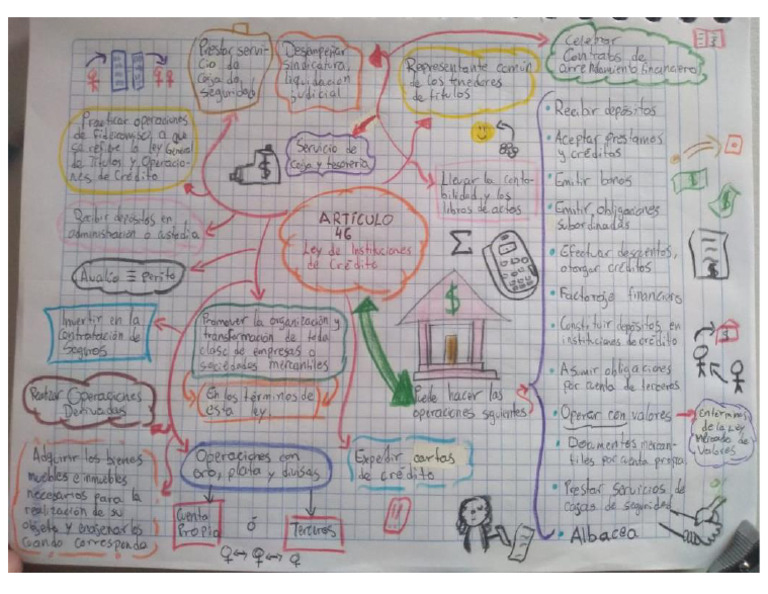 Prestar servi-
cio de
caja de
seguridad
Desempeñar
sindicatura,
liquidación
judicial
Representante común
de los tenedores
de títulos
Celebrar
contratos de
arrendamiento financiero
Practicar operaciones
de fideicomiso, a que
se refiere la Ley General
de Títulos y Operacio-
nes de Crédito
Servicio de
caja y tesorería
Llevar la conta-
bilidad, y los
libros de actas
Recibir depósitos en
administración o custodia
ARTÍCULO
46
Ley de Instituciones
de Crédito
Avalúo ≡ perito
Invertir en la
contratación de
seguros
Promover la organización y
transformación de toda
clase de empresas o
sociedades mercantiles
En los términos de
esta ley
Realizar Operaciones
Derivadas
Adquirir los bienes
muebles e inmuebles
necesarios para la
realización de su
objeto y enajenarlos
cuando corresponda
Operaciones con
oro, plata y divisas
Cuenta
Propia
ó
Terceros
Expedir cartas
de crédito
Σ
$
$
Puede hacer las
operaciones siguientes
• Recibir depósitos
• Aceptar préstamos
y créditos
• Emitir bonos
• Emitir, obligaciones
subordinadas
• Efectuar descuentos,
otorgar créditos
• Factoraje financiero
• Constituir depósitos en
instituciones de crédito
• Asumir obligaciones
por cuenta de terceros
• Operar con valores
En términos
de la Ley
Mercado de
Valores
• Documentos mercan-
tiles por cuenta propia
• Prestar servicios de
cajas de seguridad
• Albacea